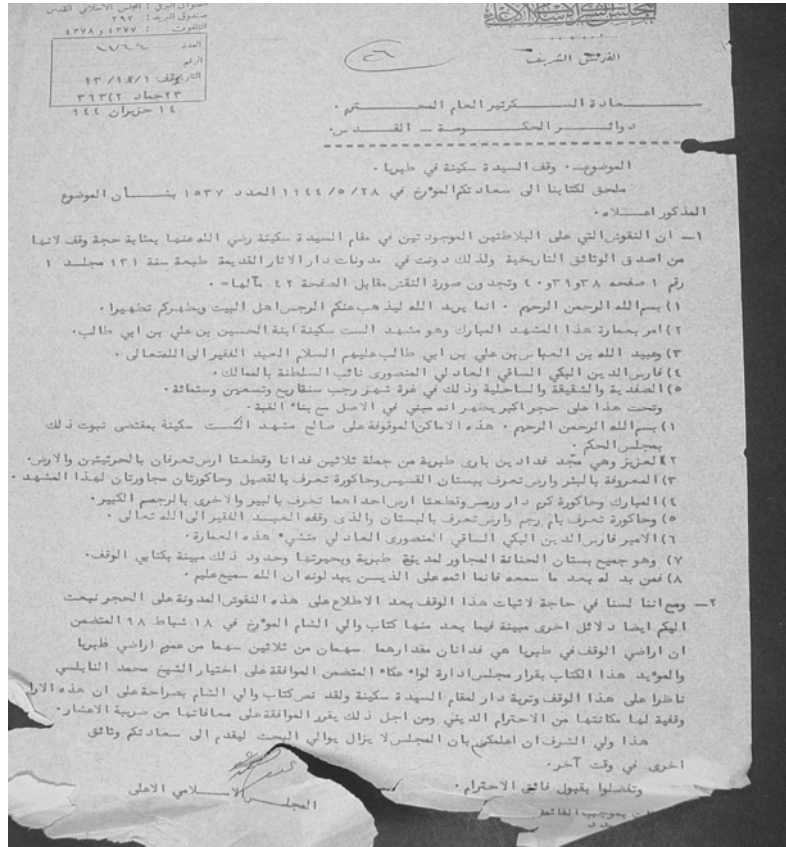 المجلس الشرعي الاسلامي الاعلى
القدس الشريف
العنوان البرقي : المجلس الاسلامي القدس
صندوق البريد : ٢٩٧
التلفون : ٤٣٧٧ و ٤٣٧٨
العدد
الرقم
التاريخ
٢٣ جماد ٣٦٣/٢
١٤ حزيران ٩٤٤
سعادة السكرتير العام المحترم .
دوائر الحكومة ـ القدس.
الموضوع ـ. وقف السيدة سكينة في طبريا .
ملحق لكتابنا الى سعادتكم المؤرخ في ١٩٤٤/٥/٢٨ العدد ١٥٣٧ بشأن الموضوع
المذكور اعلاه .
١ـ ان النقوش التي على البلاطتين الموجودتين في مقام السيدة سكينة رضي الله عنها بمثابة حجة وقف لانها
من اصدق الوثائق التاريخية ولذلك دونت في مدونات دار الاثار القديمة طبعة سنة ١٣١ مجلد ١
رقم ١ صفحه ٣٨ و ٣٩ و ٤٠ وتجدون صورة النقش مقابل الصفحة ٤٢ مآلها ـ.
١) بسم الله الرحمن الرحيم . انما يريد الله ليذهب عنكم الرجس اهل البيت ويطهركم تطهيرا .
٢) امر بعمارة هذا المشهد المبارك وهو مشهد الست سكينة ابنة الحسين بن علي بن ابي طالب .
٣) وعبيد الله بن العباس بن علي بن ابي طالب عليهم السلام العبد الفقير الى الله تعالى .
٤) فارس الدين البكي الساقي العادلي المنصورى نائب السلطنة بالممالك .
٥) الصفدية والشقيفة والساحلية وذلك في غرة شهر رجب سنة اربع وتسعين وستمائة .
وتحت هذا على حجر اكبر يظهر انه مبني في الاصل مع بناء القبة .
١) بسم الله الرحمن الرحيم . هذه الاماكن الموقوفة على صالح مشهد الست سكينة بمقتضى ثبوت ذلك
بمجلس الحكم .
٢) العزيز وهي فدادين بارى طبرية من جملة ثلاثين فدانا وقطعتا ارض تعرفان بالحرثيتين والارض .
٣) المعروفة بالبئر وارض تعرف ببستان القسيس وحاكورة تعرف بالقصيل وحاكورتان مجاورتان لهذا المشهد .
٤) المبارك وحاكورة كرم دار ورمس وقطعتا ارض احداهما تعرف بالبير والاخرى بالرجم الكبير .
٥) وحاكورة تعرف بام رجم وارض تعرف بالبستان والذى وقفه العبد الفقير الى الله تعالى .
٦) الامير فارس الدين البكي الساقي المنصورى العادلي منشيء هذه العمارة .
٧) وهو جميع بستان الحنانة المجاور لمدينة طبرية وبحيرتها وحدود ذلك مبينة بكتابي الوقف.
٨) فمن بدله بعد ما سمعه فانما اثمه على الذين يبدلونه ان الله سميع عليم .
٢ـ ومع اننا لسنا في حاجة لاثبات هذا الوقف بعد الاطلاع على هذه النقوش المدونة على الحجر نبعث
اليكم ايضا دلائل اخرى مبينة فيما بعد منها كتاب والي الشام المؤرخ في ١٨ شباط ٩٨ المتضمن
ان اراضي الوقف في طبريا هي فدانان مقدارهما سهمان من ثلاثين سهما من عموم اراضي طبريا
والمؤيد هذا الكتاب بقرار مجلس ادارة لواء عكاء المتضمن الموافقة على اختيار الشيخ محمد النابلسي
ناظرا على هذا الوقف وتربة دار لمقام السيدة سكينة ولقد نص كتاب والي الشام بصراحة على ان هذه
وقفية لها مكانتها من الاحترام الديني ومن اجل ذلك يقرر الموافقة على معافاتها من ضريبة الاعشار .
هذا ولي الشرف ان اعلمكم بان المجلس لا يزال يوالي البحث ليقدم الى سعادتكم وثائق
اخرى في وقت آخر .
وتفضلوا بقبول فائق الاحترام .
المجلس الاسلامي الاعلى